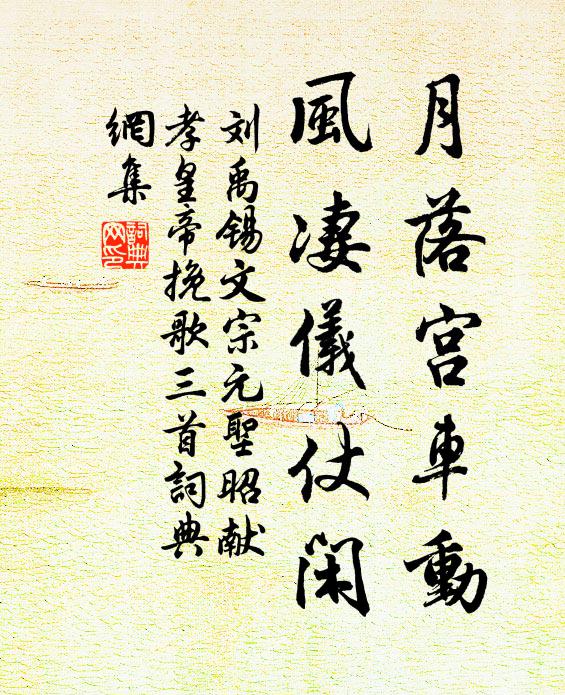 月落宫車動
風凄儀仗閑
刘禹锡文宗元聖昭献
孝皇帝挽歌三首詞典
網集
詞典
网印